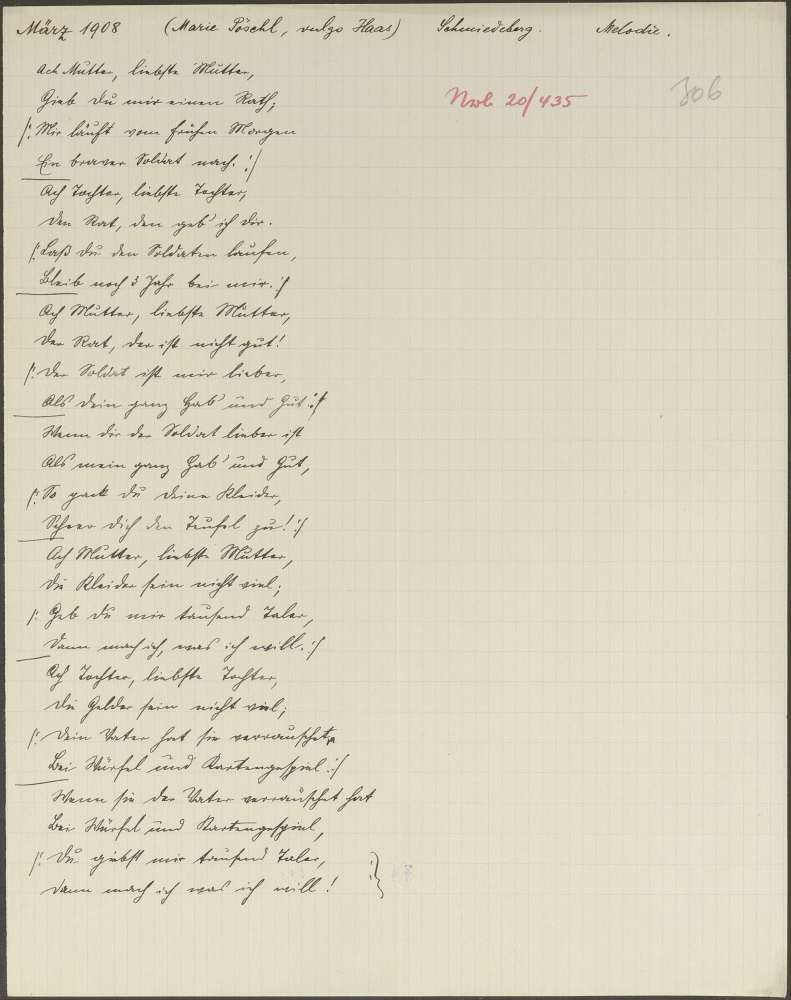 März 1908 (Marie Pöschl, vulgo Haas) Schmiedeberg. Melodie.
Ach Mutter, liebste Mutter,
Gieb du mir einen Rath;
Nrb 20/435
306
/: Mir läuft vom frühen Morgen
Ein braver Soldat nach. :/
Ach Tochter, liebste Tochter,
Den Rat, den geb' ich dir.
/: Laß du den Soldaten laufen,
Bleib noch 3 Jahr bei mir. :/
Ach Mutter, liebste Mutter,
Der Rat, der ist nicht gut!
/: Der Soldat ist mir lieber,
Als dein ganz Hab' und Gut :/
Wenn dir der Soldat lieber ist
Als mein ganz Hab' und Gut,
/: So pack du deine Kleider,
Scheer dich den Teufel zu! :/
Ach Mutter, liebste Mutter,
Die Kleider sein nicht viel;
/: Geb du mir tausend Taler,
Dann mach ich, was ich will. :/
Ach Tochter, liebste Tochter,
Die Gelder sein nicht viel;
/: Dein Vater hat sie verrauschet
Bei Würfel und Kartengespiel. :/
Wenn sie der Vater verrauschet hat
Bei Würfel und Kartengespiel,
/: Du giebst mir tausend Taler,
Dann mach ich was ich will! :/